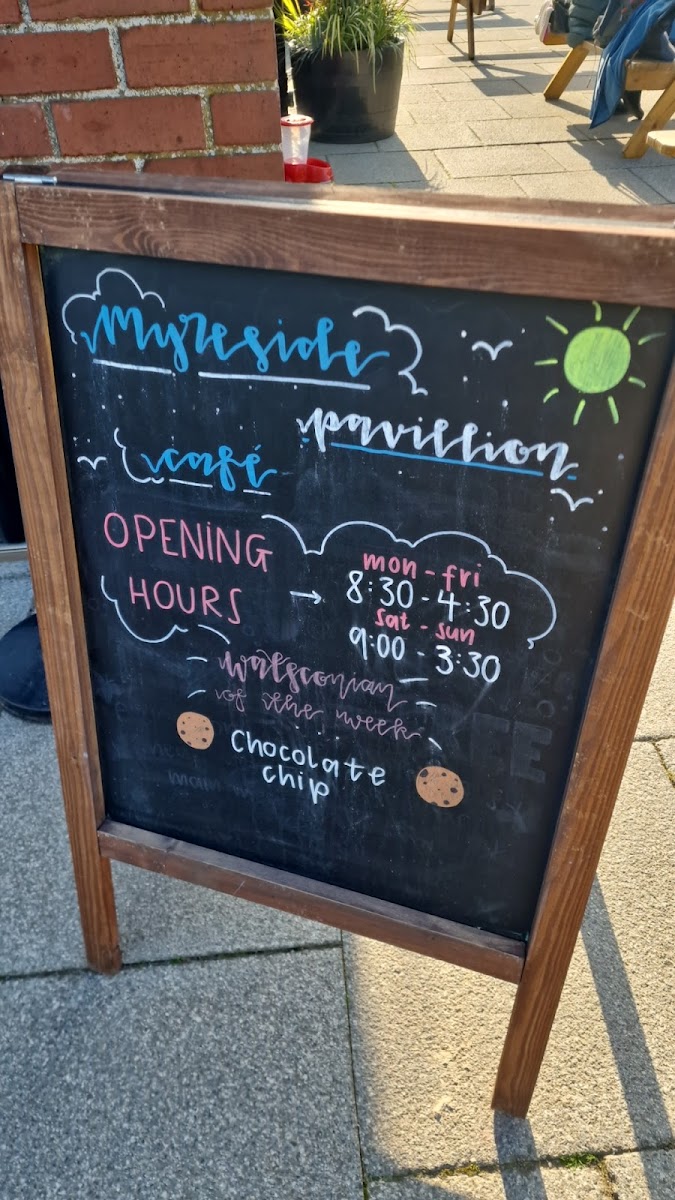 Myreside
pavillion
café
OPENING
HOURS → mon - fri
8:30 - 4:30
sat - sun
9:00 - 3:30
Watsconian
of the week
Chocolate
chip